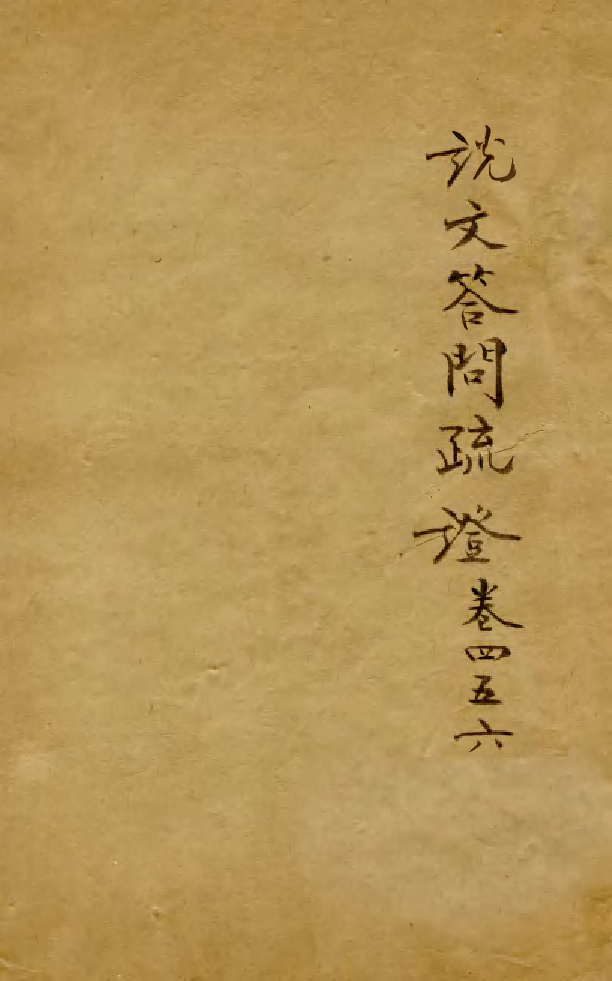 說文答問疏證卷四五六